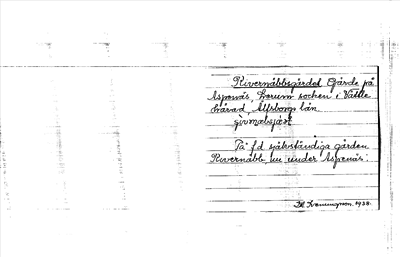 Rivernäbbsgärdet Gärde på
Aspenäs, Lerum socken i Vättle
härad, Älfsborgs län.
På f.d. självständiga gården
Rivernäbb, nu under Aspenäs.
1938.